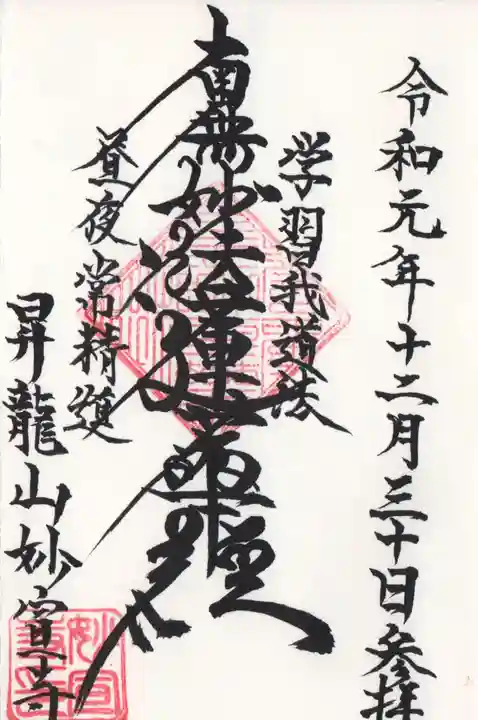 令和元年十二月三十日参拝
学習我道法
南無妙法蓮華経
昼夜常精進
昇龍山妙寳寺